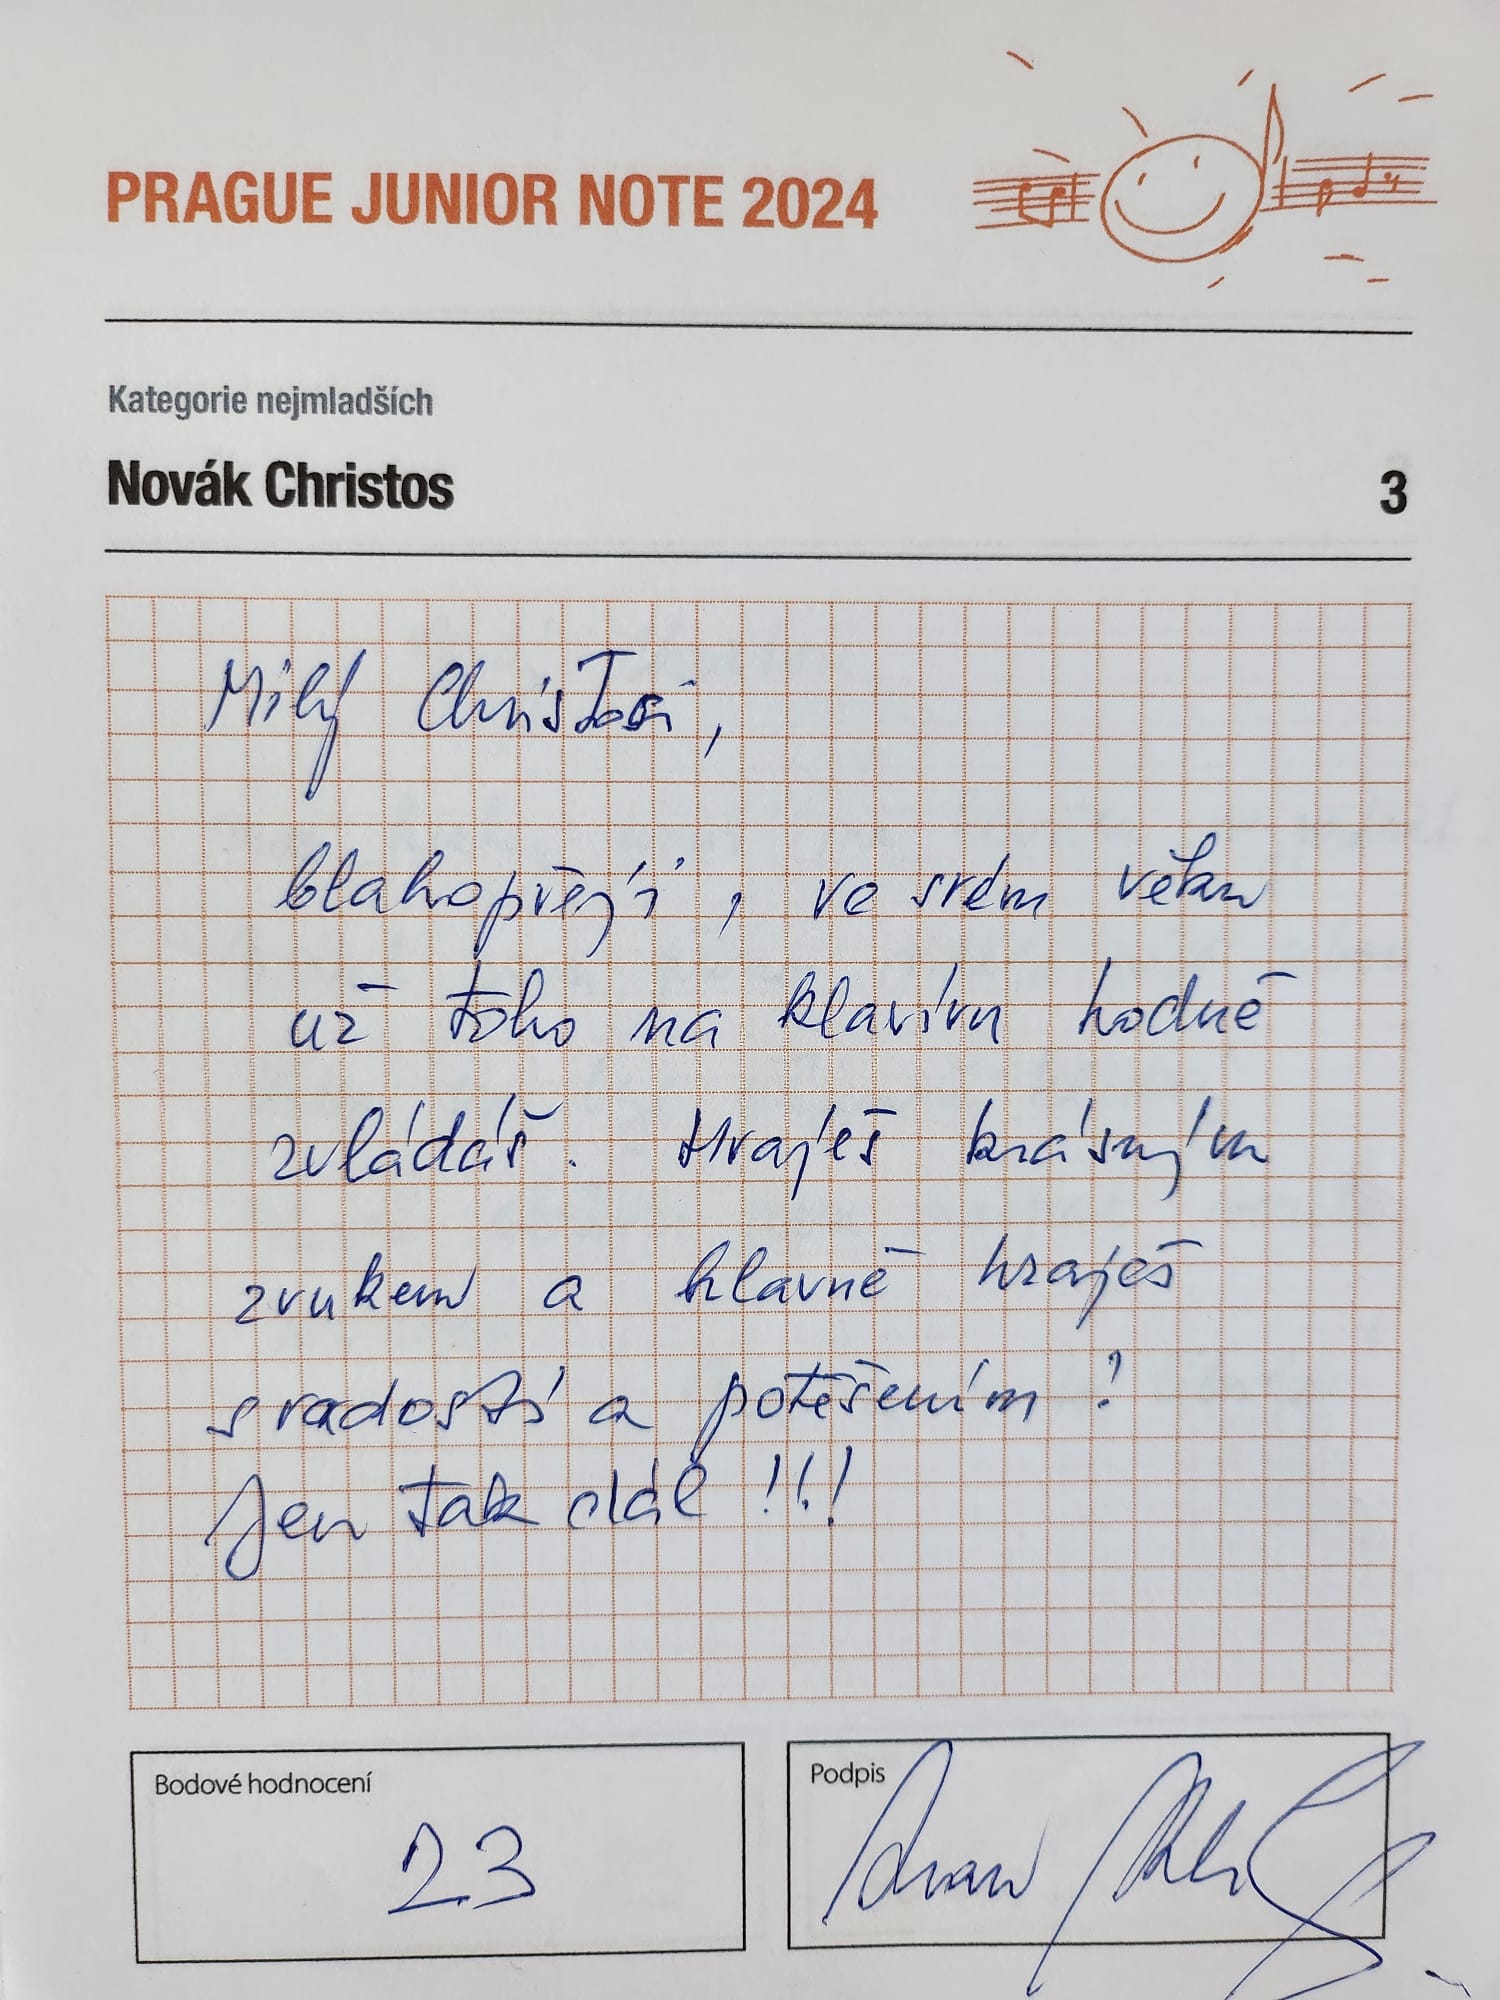 PRAGUE JUNIOR NOTE 2024
Kategorie nejmladších
Novák Christos
3
Milý Christosi,
blahopřeji, ve svém věku
už toho na klavíru hodně
zvládáš. Hraješ krásným
zvukem a hlavně hraješ
s radostí a potěšením!
Jen tak dál !!!
Bodové hodnocení
23
Podpis